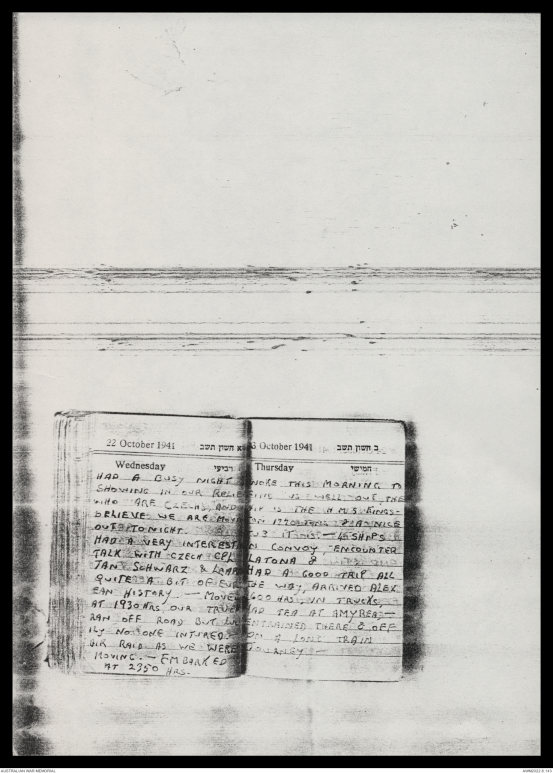 22 October 1941 א חשון תשב
Wednesday רביעי
HAD A BUSY NIGHT
SHOWING IN OUR RELIE
WHO ARE CZECHS, AND
BELIEVE WE ARE MOVI
OUT TONIGHT.
HAD A VERY INTEREST
TALK WITH CZECH CPL
JAN SCHWARZ & LEAR
QUITE A BIT OF EUR
EAN HISTORY. — MOVE
AT 1930 HRS OUR TRUCK
RAN OFF ROAD BUT LU
ILY NO ONE INJURED.
AIR RAID AS WE WERE
MOVING. — EMBARKED
AT 2350 HRS.
3 October 1941 ב חשון תשב
Thursday חמישי
WOKE THIS MORNING TO
US WELL OUT THE
IS THE H.M.S. KINGS-
ON 1220 TONS & A NICE
IT IS — 4 SHIPS
N CONVOY ENCOUNTER
LATONA &
HAD A GOOD TRIP ALL
THE WAY, ARRIVED ALEX
1600 HRS, IN TRUCKS,
HAD TEA AT AMYREA —
ENTRAINED THERE & OFF
ON A LONG TRAIN
JOURNEY —
AUSTRALIAN WAR MEMORIAL